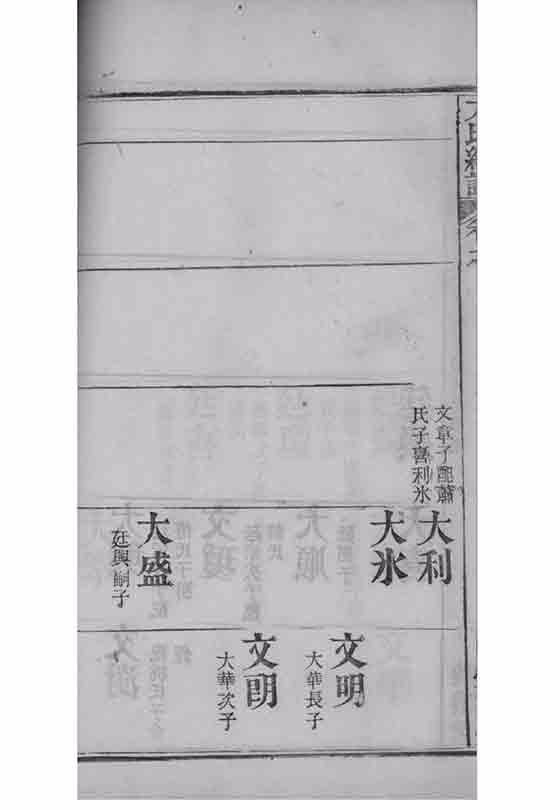 文章子配蕭
氏子喜利氷
大利
大氷
大盛
廷興嗣子
文明
大華長子
文朗
大華次子